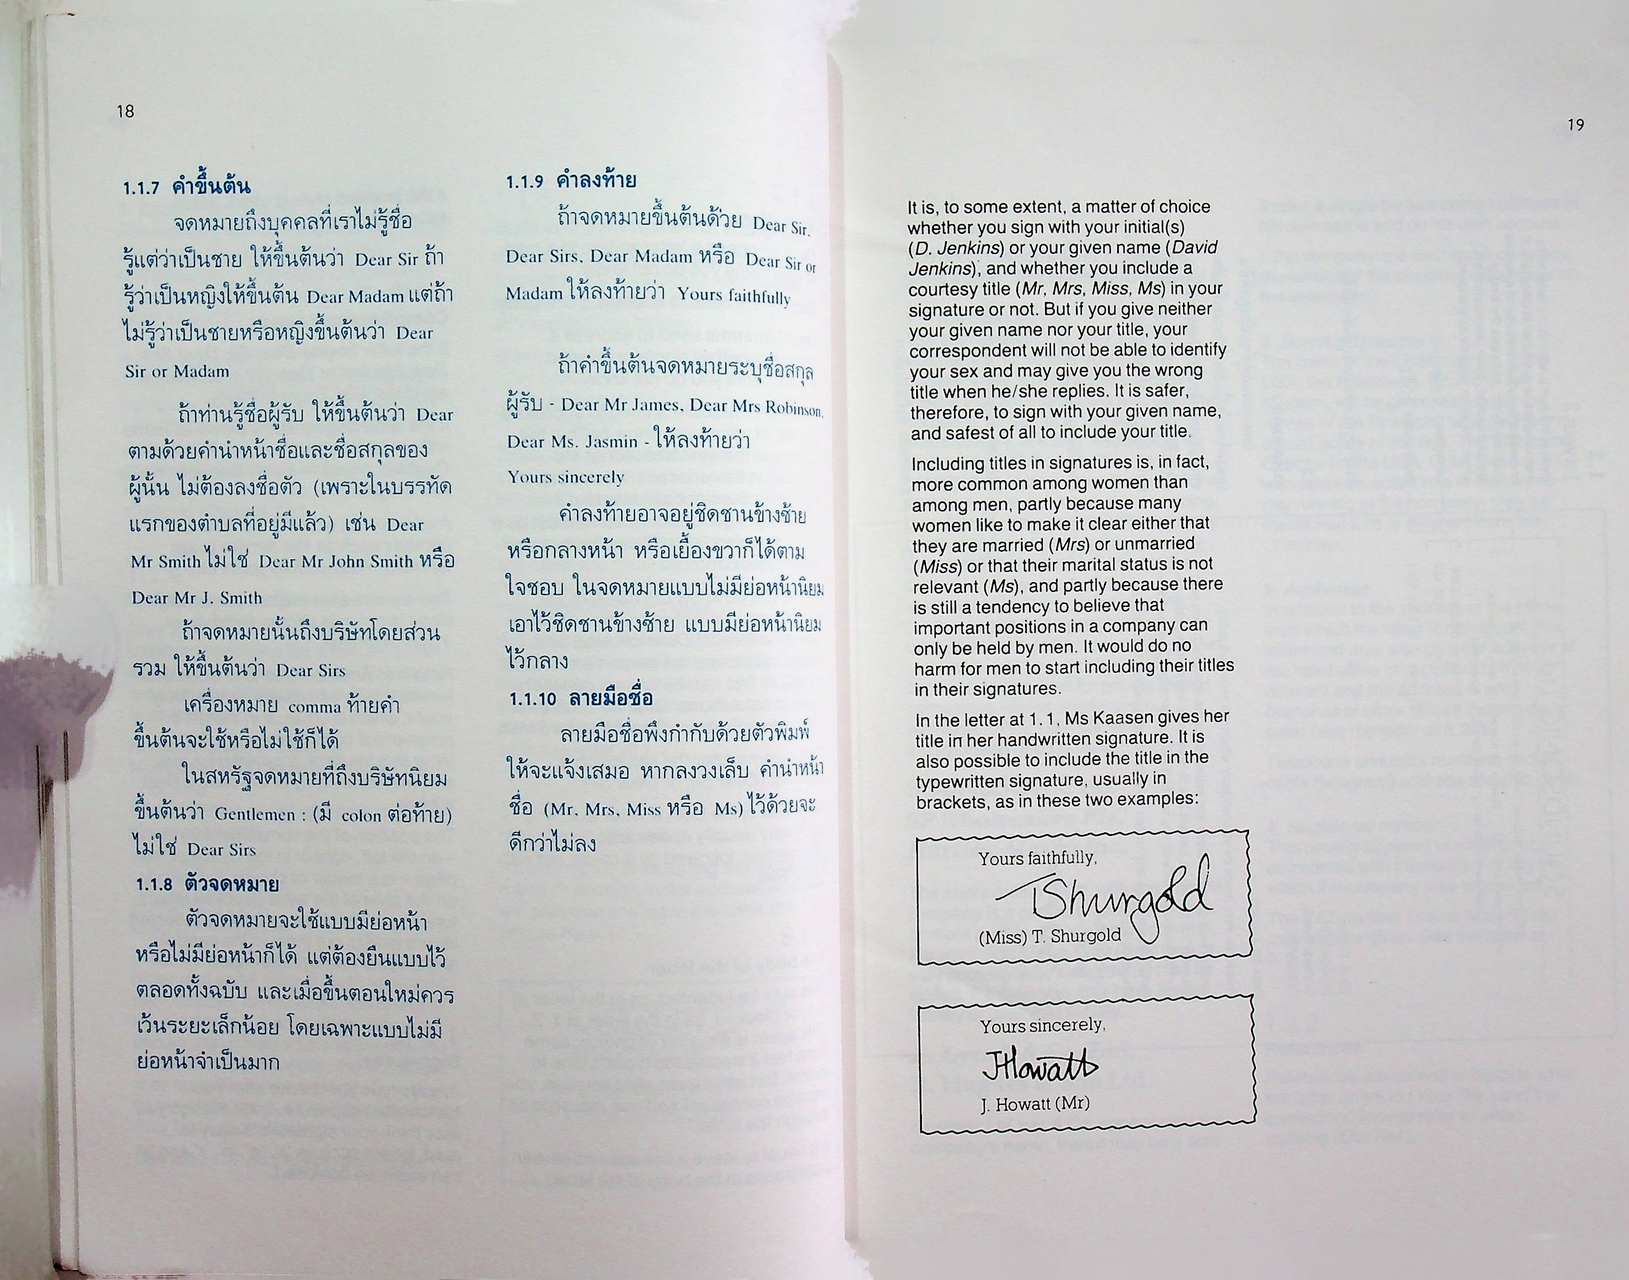 18
1.1.7 คำขึ้นต้น
จดหมายถึงบุคคลที่เราไม่รู้ชื่อ
รู้แต่ว่าเป็นชาย ให้ขึ้นต้นว่า Dear Sir ถ้า
รู้ว่าเป็นหญิงให้ขึ้นต้น Dear Madam แต่ถ้า
ไม่รู้ว่าเป็นชายหรือหญิงขึ้นต้นว่า Dear
Sir or Madam
ถ้าท่านรู้ชื่อผู้รับ ให้ขึ้นต้นว่า Dear
ตามด้วยคำนำหน้าชื่อและชื่อสกุลของ
ผู้นั้น ไม่ต้องลงชื่อตัว (เพราะในบรรทัด
แรกของตำบลที่อยู่มีแล้ว) เช่น Dear
Mr Smith ไม่ใช่ Dear Mr John Smith หรือ
Dear Mr J. Smith
ถ้าจดหมายนั้นถึงบริษัทโดยส่วน
รวม ให้ขึ้นต้นว่า Dear Sirs
เครื่องหมาย comma ท้ายคำ
ขึ้นต้นจะใช้หรือไม่ใช้ก็ได้
ในสหรัฐจดหมายที่ถึงบริษัทนิยม
ขึ้นต้นว่า Gentlemen : (มี colon ต่อท้าย)
ไม่ใช่ Dear Sirs
1.1.8 ตัวจดหมาย
ตัวจดหมายจะใช้แบบมีย่อหน้า
หรือไม่มีย่อหน้าก็ได้ แต่ต้องยืนแบบไว้
ตลอดทั้งฉบับ และเมื่อขึ้นตอนใหม่ควร
เว้นระยะเล็กน้อย โดยเฉพาะแบบไม่มี
ย่อหน้าจำเป็นมาก
1.1.9 คำลงท้าย
ถ้าจดหมายขึ้นต้นด้วย Dear Sir,
Dear Sirs, Dear Madam หรือ Dear Sir or
Madam ให้ลงท้ายว่า Yours faithfully
ถ้าคำขึ้นต้นจดหมายระบุชื่อสกุล
ผู้รับ - Dear Mr James, Dear Mrs Robinson,
Dear Ms. Jasmin - ให้ลงท้ายว่า
Yours sincerely
คำลงท้ายอาจอยู่ชิดชานข้างซ้าย
หรือกลางหน้า หรือเยื้องขวาก็ได้ตาม
ใจชอบ ในจดหมายแบบไม่มีย่อหน้านิยม
เอาไว้ชิดชานข้างซ้าย แบบมีย่อหน้านิยม
ไว้กลาง
1.1.10 ลายมือชื่อ
ลายมือชื่อพึงกำกับด้วยตัวพิมพ์
ให้จะแจ้งเสมอ หากลงวงเล็บ คำนำหน้า
ชื่อ (Mr, Mrs, Miss หรือ Ms) ไว้ด้วยจะ
ดีกว่าไม่ลง
19
It is, to some extent, a matter of choice
whether you sign with your initial(s)
(D. Jenkins) or your given name (David
Jenkins), and whether you include a
courtesy title (Mr, Mrs, Miss, Ms) in your
signature or not. But if you give neither
your given name nor your title, your
correspondent will not be able to identify
your sex and may give you the wrong
title when he/she replies. It is safer,
therefore, to sign with your given name,
and safest of all to include your title.
Including titles in signatures is, in fact,
more common among women than
among men, partly because many
women like to make it clear either that
they are married (Mrs) or unmarried
(Miss) or that their marital status is not
relevant (Ms), and partly because there
is still a tendency to believe that
important positions in a company can
only be held by men. It would do no
harm for men to start including their titles
in their signatures.
In the letter at 1.1, Ms Kaasen gives her
title in her handwritten signature. It is
also possible to include the title in the
typewritten signature, usually in
brackets, as in these two examples:
Yours faithfully,
TShurgold
(Miss) T. Shurgold
Yours sincerely,
JHowatt
J. Howatt (Mr)